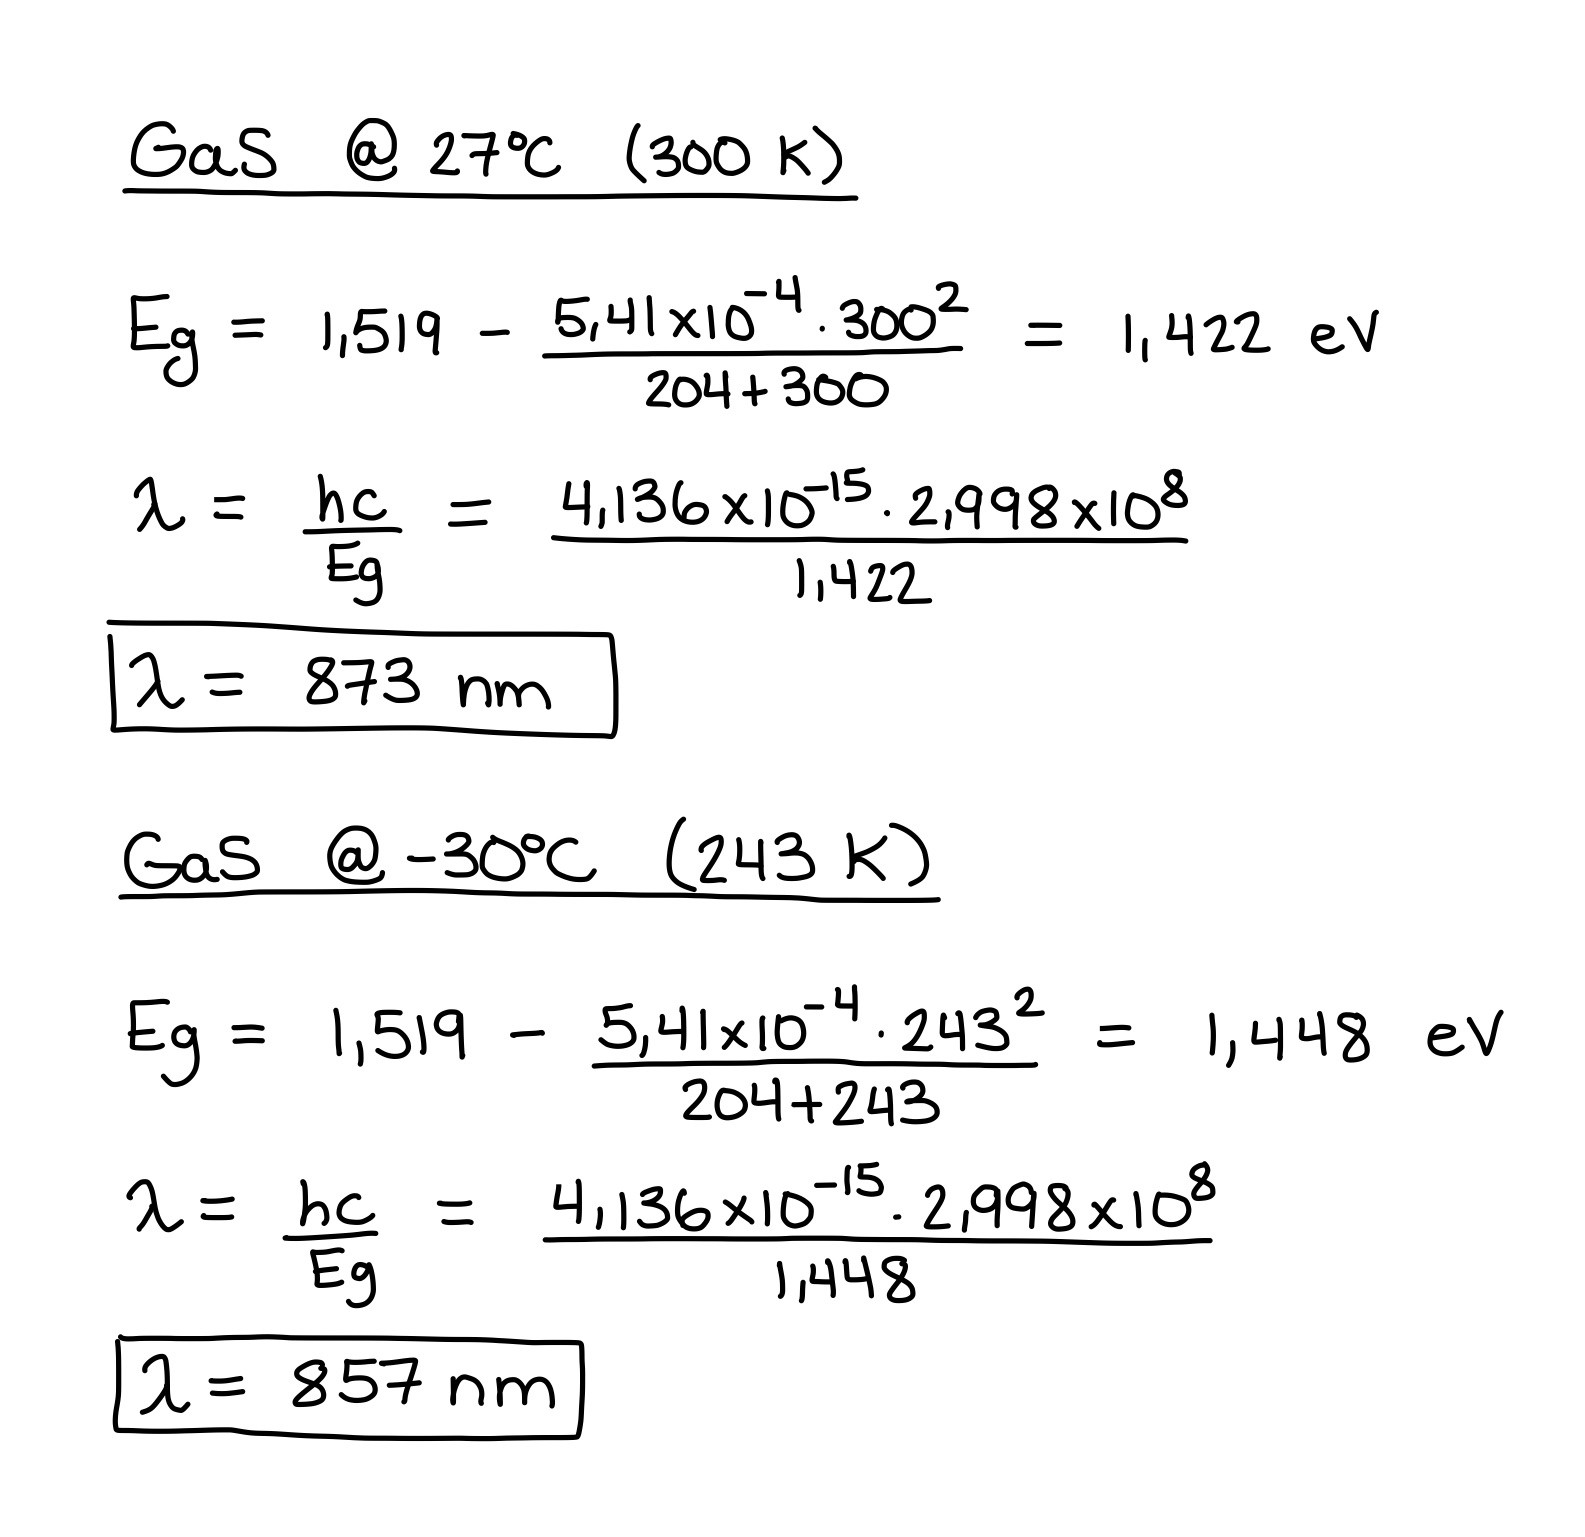 GaS @ 27°C (300 K)
Eg = 1,519 - 5,41x10⁻⁴ · 300² / 204+300 = 1,422 eV
λ = hc / Eg = 4,136x10⁻¹⁵ · 2,998x10⁸ / 1,422
λ = 873 nm
GaS @ -30°C (243 K)
Eg = 1,519 - 5,41x10⁻⁴ · 243² / 204+243 = 1,448 eV
λ = hc / Eg = 4,136x10⁻¹⁵ · 2,998x10⁸ / 1,448
λ = 857 nm